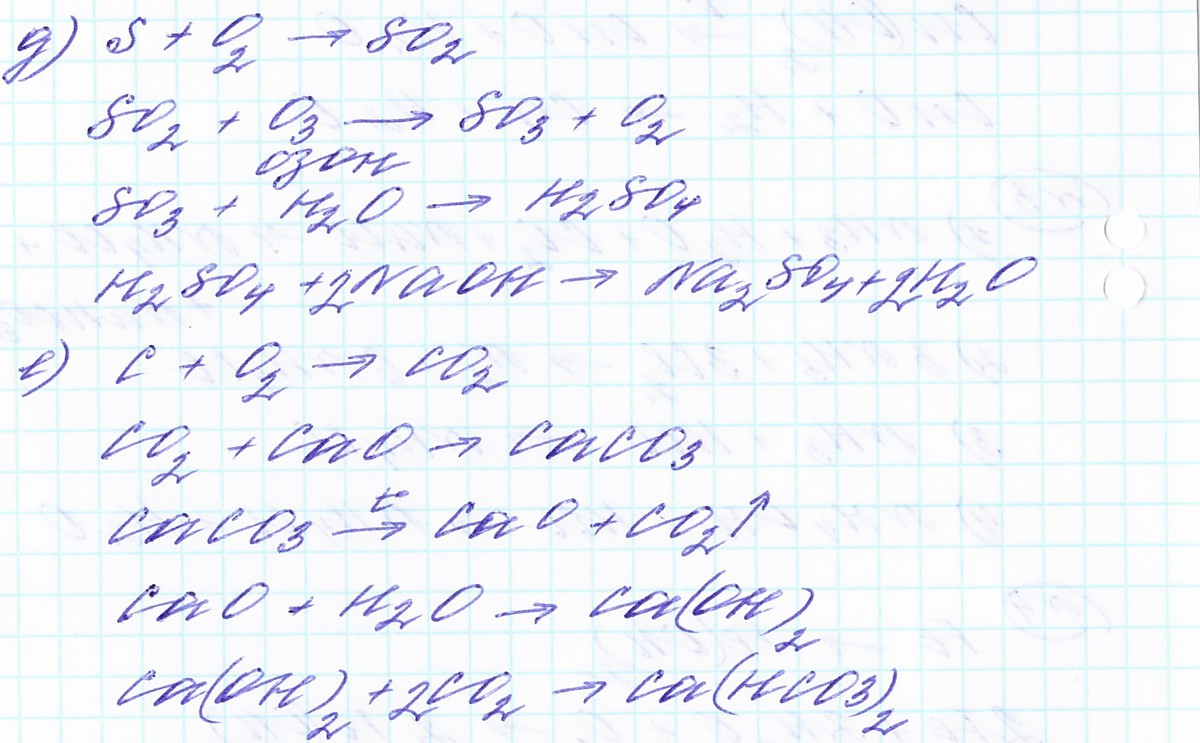 д) S + O₂ → SO₂
SO₂ + O₃ → SO₃ + O₂
озон
SO₃ + H₂O → H₂SO₄
H₂SO₄ + 2NaOH → Na₂SO₄ + 2H₂O
е) C + O₂ → CO₂
CO₂ + CaO → CaCO₃
CaCO₃ →ᵗ CaO + CO₂↑
CaO + H₂O → Ca(OH)₂
Ca(OH)₂ + 2CO₂ → Ca(HCO₃)₂